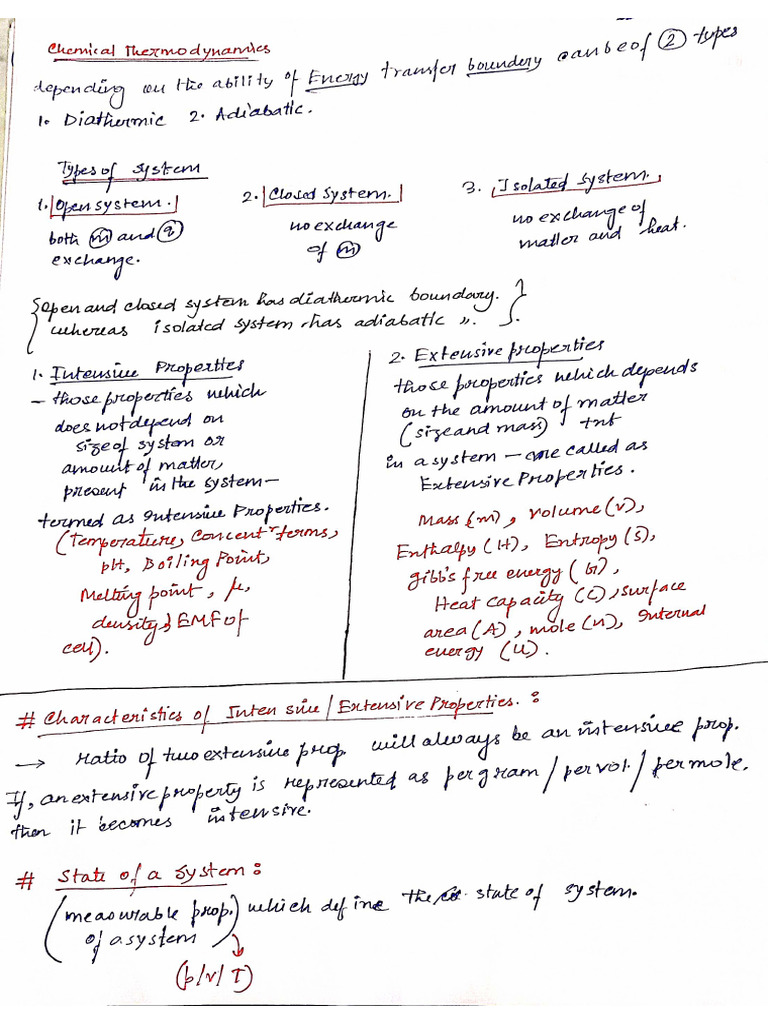 Chemical Thermodynamics
depending on the ability of Energy transfer boundary can be of 2 types
1. Diathermic 2. Adiabatic.
Types of system
1. Open system.
both m and q
exchange.
2. Closed System.
no exchange
of m
3. Isolated system.
no exchange of
matter and heat.
{open and closed system has diathermic boundary.}
{whereas isolated system has adiabatic ".}
1. Intensive Properties
- those properties which
does not depend on
size of system or
amount of matter,
present in the system -
termed as Intensive Properties.
(Temperature, Concentⁿ terms,
pH, Boiling Point,
Melting point, μ,
density, EMF of
cell).
2. Extensive properties
those properties which depends
on the amount of matter
(size and mass)
in a system - are called as
Extensive Properties.
Mass (m), volume (v),
Enthalpy (H), Entropy (S),
gibb's free energy (G),
Heat capacity (C), surface
area (A), mole (n), Internal
energy (U).
# Characteristics of Intensive/Extensive Properties. :
→ Ratio of two extensive prop. will always be an intensive prop.
If, an extensive property is represented as per gram/per vol./per mole,
then it becomes intensive.
# State of a System:
(measurable prop.) which define the state of system.
of a system
(p/v/T)